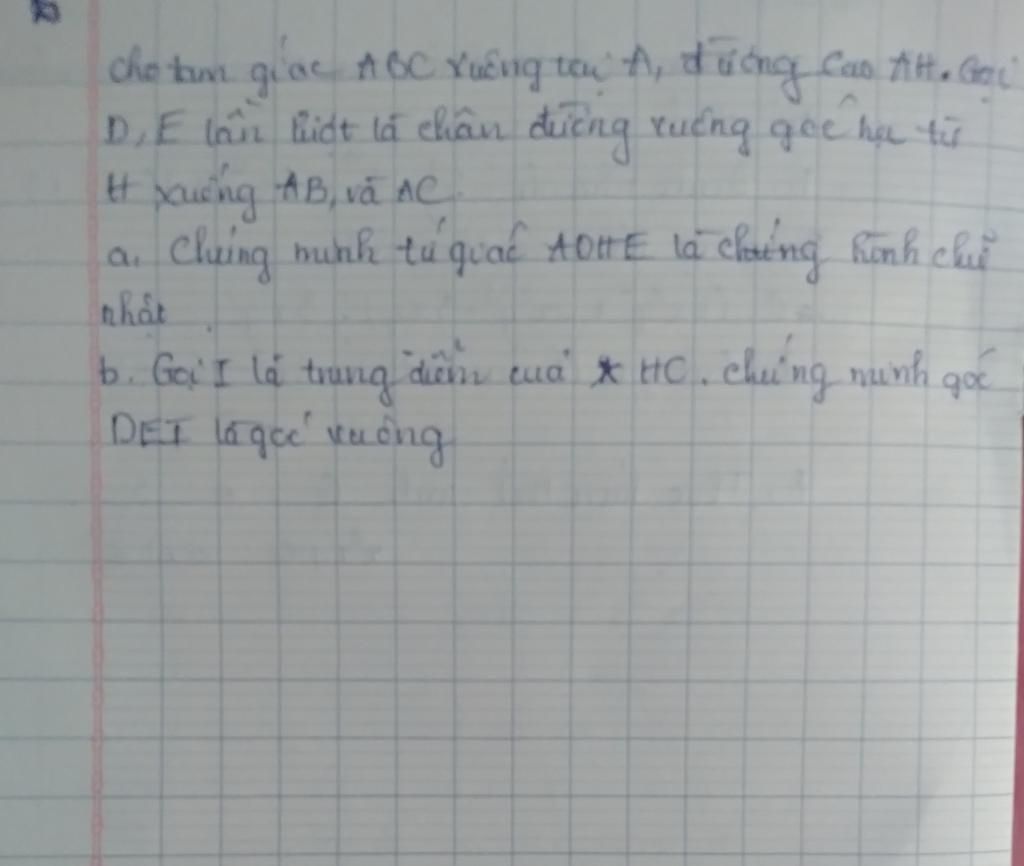 cho tam giác ABC vuông tại A, đường cao AH. Gọi
D, E lần lượt là chân đường vuông góc hạ từ
H xuống AB, và AC
a. Chứng minh tứ giác ADHE là chứng hình chữ
nhật
b. Gọi I là trung điểm của HC. chứng minh góc
DEI là góc vuông